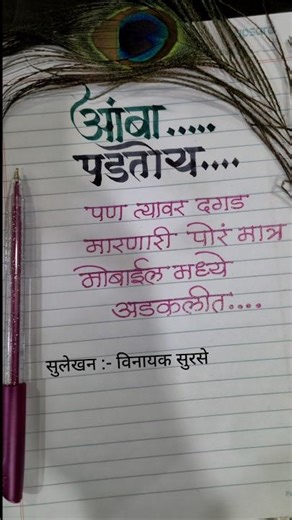 आंबा.....
पडतोय....
पण त्यावर दगड
मारणारी पोरं मात्र
मोबाईल मध्ये
अडकलीत....
सुलेखन :- विनायक सुरसे